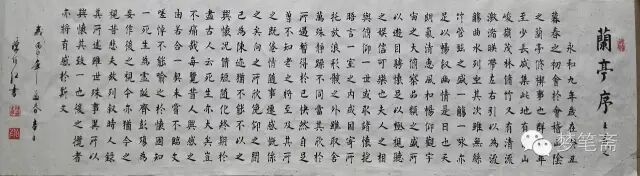 蘭亭序
永和九年歲在癸丑
暮春之初會於會稽山陰
之蘭亭脩禊事也群賢畢
至少長咸集此地有崇山
峻嶺茂林脩竹又有清流
激湍暎帶左右引以為流
觴曲水列坐其次雖無絲
竹管弦之盛一觴一詠亦
足以暢敘幽情是日也天
朗氣清惠風和暢仰觀宇
宙之大俯察品類之盛所
以遊目騁懷足以極視聽
之娛信可樂也夫人之相
與俯仰一世或取諸懷抱
晤言一室之內或因寄所
託放浪形骸之外雖取舍
萬殊靜躁不同當其欣於
所遇暫得於己快然自足
曾不知老之將至及其所
之既倦情隨事遷感慨係
之矣向之所欣俛仰之間
已為陳迹猶不能不以之
興懷況脩短隨化終期於
盡古人云死生亦大矣豈
不痛哉每覽昔人興感之
由若合一契未嘗不臨文
嗟悼不能喻之於懷固知
一死生為虛誕齊彭殤為
妄作後之視今亦猶今之
視昔悲夫故列敘時人錄
其所述雖世殊事異所以
興懷其致一也後之攬者
亦將有感於斯文
梦笔斋